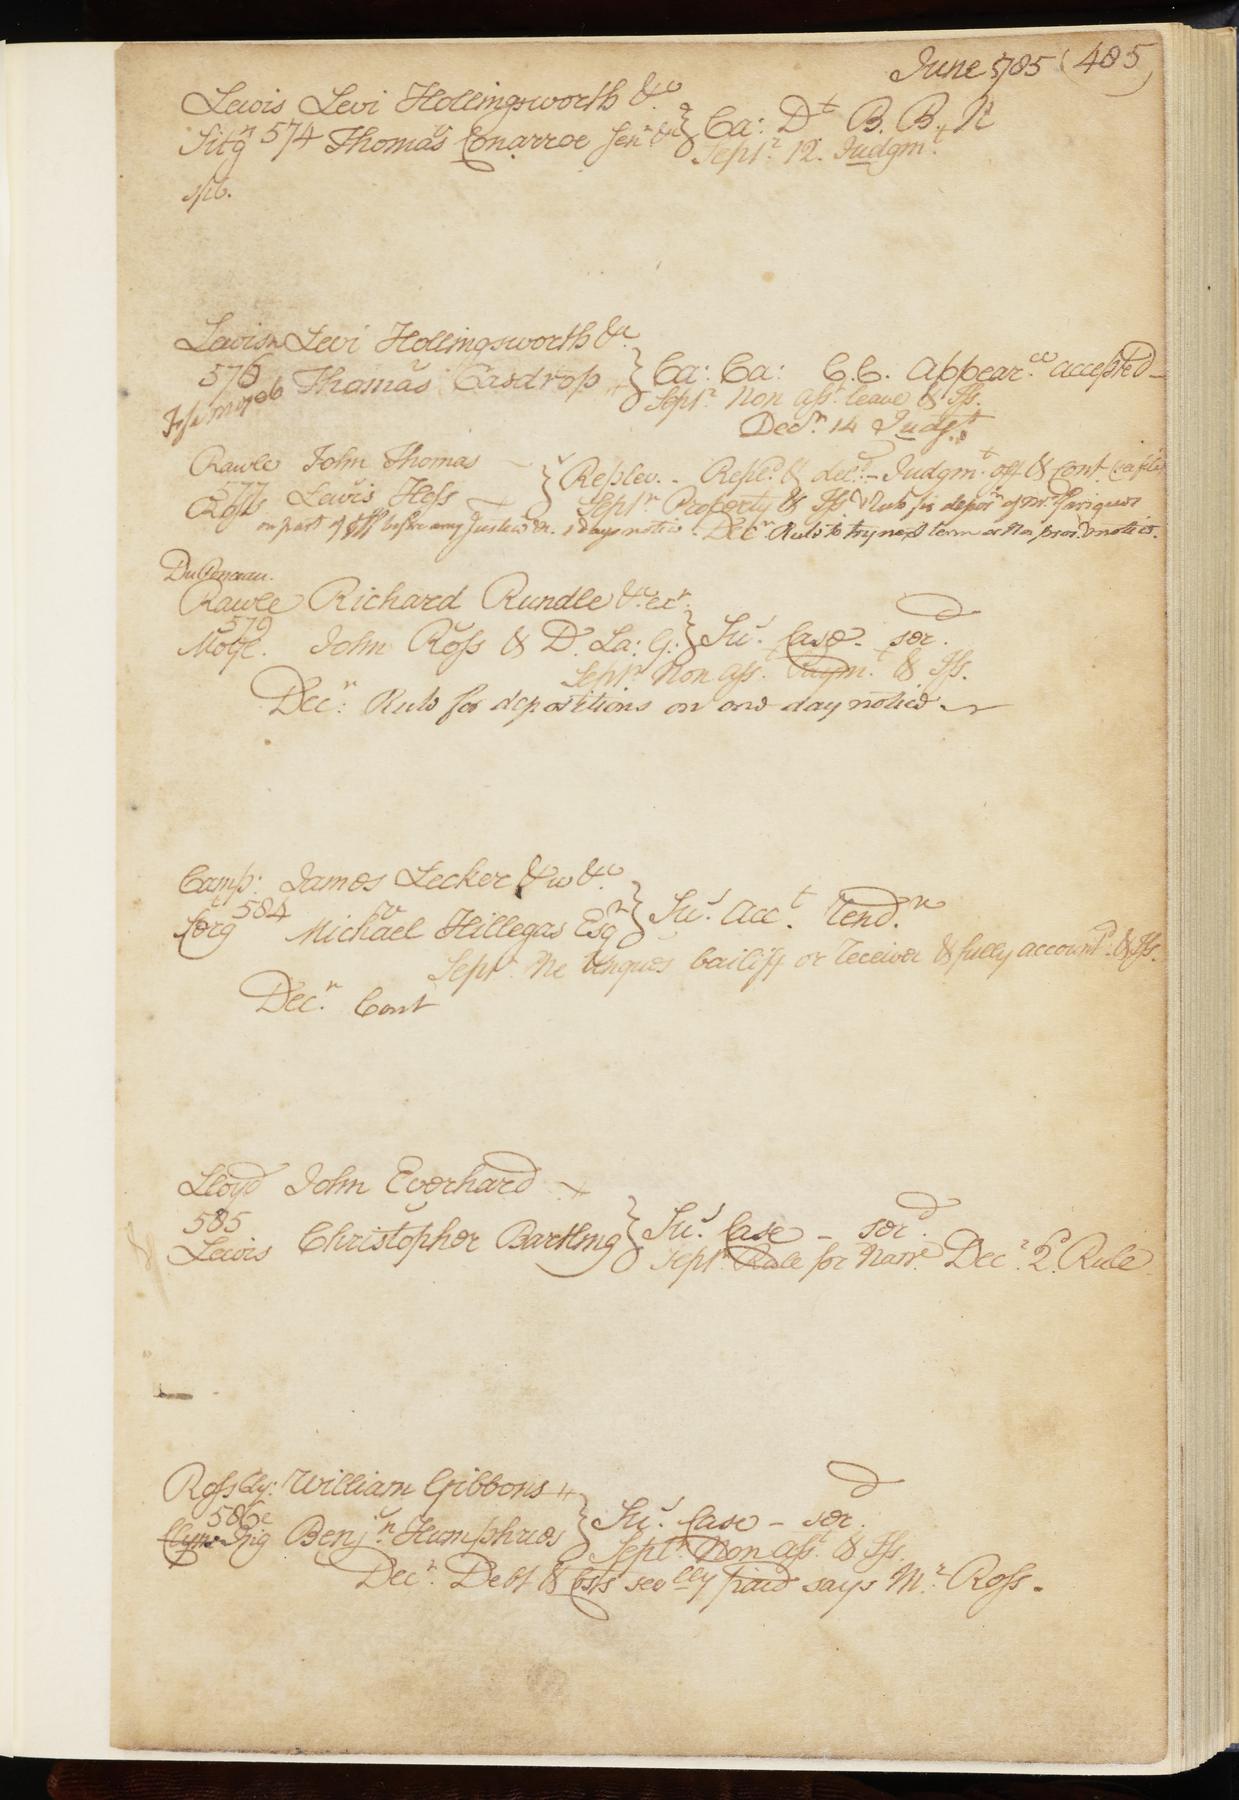 June 1785 (485)
Lewis Levi Hollingsworth &c
574 Thomas Conarroe Senr &c } Ca: Dt B. B. N
Septr 12. Judgmt
Lewis Levi Hollingsworth &c
576 Thomas Casdrop } Ca: Ca: C.C. Appearce accepted
Septr Non asst leave & Iss.
Decr 14 Judgt
Rawle John Thomas } Replev. - Repld & decd - Judgmt off & Cont
577 v
Ross Lewis Hess Septr Property & Iss
on part of before any Justice &c. days notice. Decr Rule to try next term or Non pros. & notice.
Du Ponceau.
Rawle Richard Rundle &c exr
579 v
John Ross & D. La: G: } Su.s Case - serd
Septr Non asst Paymt & Iss.
Decr: Rule for depositions on one day notice
Camp: James Lecker & w &c
584 v
Serg Michael Hillegas Esqr } Su.s Acct rendr
Septr Ne unques bailiff or receiver & fully accountd & Iss.
Decr Cont
Lloyd John Everhard
585 v
Lewis Christopher Bartling } Su.s Case - serd
Septr Rule for Narr. Decr 2d Rule
Ross Cly: William Gibbons
586 v
Benjn Humphries } Su.s Case - serd
Septr Non asst & Iss.
Decr. Debt & Costs paid says Mr Ross.